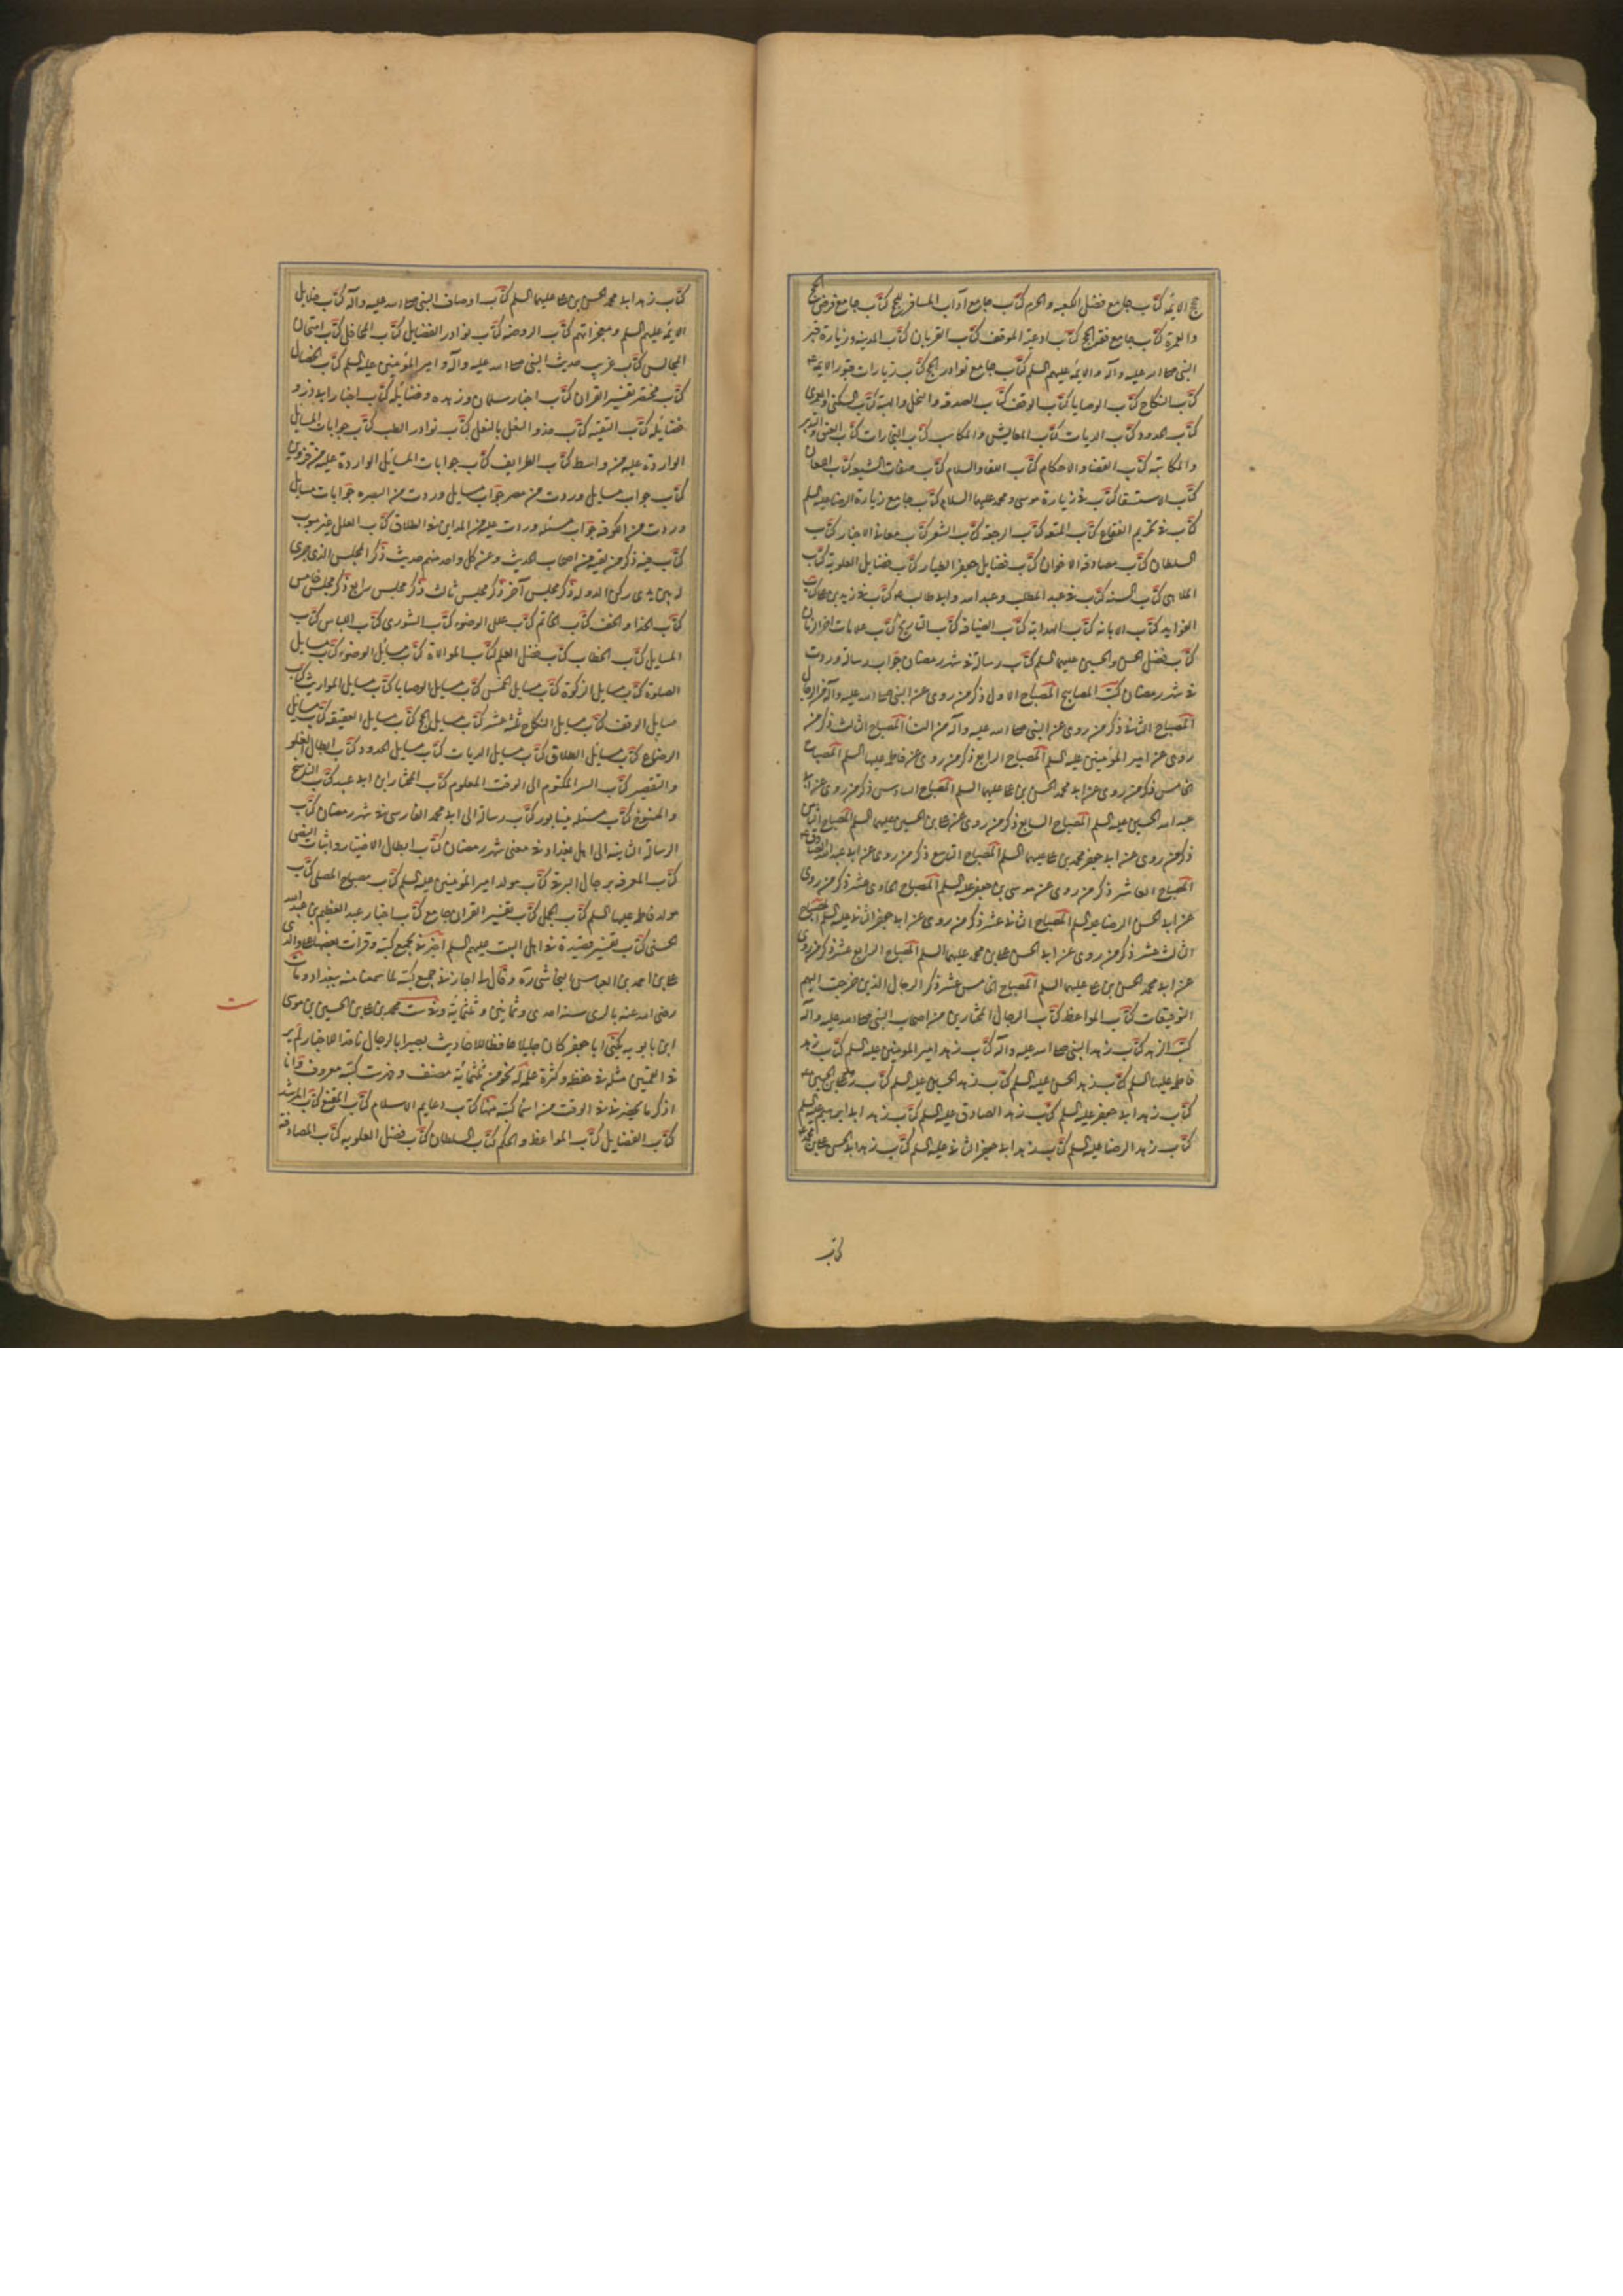 حج الائمه كتاب جامع فضل الكعبه والحرم كتاب جامع اداب المسافر للحج كتاب جامع فرض الحج
والعمرة كتاب جامع فقه الحج كتاب ادعية الموقف كتاب القربان كتاب المدينه وزيارة قبر
النبى صلى الله عليه وآله والائمه عليهم السلم كتاب جامع نوادر الحج كتاب زيارات قبور الائمه ع
كتاب النكاح كتاب الوصايا كتاب الوقف كتاب الصدقه والنحل والهبة كتاب السكنى والعمرى
كتاب الحدود كتاب الديات كتاب المعايش والمكاسب كتاب التجارات كتاب العتق والتدبير
والمكاتبه كتاب القضا والاحكام كتاب اللقا والسلام كتاب صفات الشيعه كتاب اللعان
كتاب الاستسقا كتاب فى زيارة موسى ومحمد عليهما السلام كتاب جامع زيارة الرضا عليه السلم
كتاب فى تحريم الفقاع كتاب المتعه كتاب الرجعه كتاب الشعر كتاب معانى الاخبار كتاب
السلطان كتاب مصادقة الاخوان كتاب فضايل جعفر الطيار كتاب فضايل العلوية كتاب
الملاهى كتاب السنه كتاب فى عبد المطلب وعبد الله وابى طالب كتاب فى زيد بن على كتاب
الفوايد كتاب الابانه كتاب الهداية كتاب الضيافه كتاب التاريخ كتاب علامات اخر الزمان
كتاب فضل الحسن والحسين عليهما السلم كتاب رسالة فى شهر رمضان جواب رسالة وردت
فى شهر رمضان كتب المصابيح المصباح الاول ذكر من روى عن النبى صلى الله عليه وآله من الرجال
المصباح الثانى ذكر من روى عن النبى صلى الله عليه وآله من النسا المصباح الثالث ذكر من
روى عن امير المؤمنين عليه السلم المصباح الرابع ذكر من روى عن فاطمه عليها السلم المصباح
الخامس ذكر من روى عن ابى محمد الحسن بن على عليهما السلم المصباح السادس ذكر من روى عن ابى
عبد الله الحسين عليه السلم المصباح السابع ذكر من روى عن على بن الحسين عليهما السلم المصباح الثامن
ذكر من روى عن ابى جعفر محمد بن على عليهما السلم المصباح التاسع ذكر من روى عن ابى عبد الله الصادق ع
المصباح العاشر ذكر من روى عن موسى بن جعفر عليه السلم المصباح الحادى عشر ذكر من روى
عن ابى الحسن الرضا عليه السلم المصباح الثانى عشر ذكر من روى عن ابى جعفر الثانى عليه السلم المصباح
الثالث عشر ذكر من روى عن ابى الحسن على بن محمد عليهما السلم المصباح الرابع عشر ذكر من روى
عن ابى محمد الحسن بن على عليهما السلم المصباح الخامس عشر ذكر الرجال الذين خرجت اليهم
التوقيعات كتاب المواعظ كتاب الرجال المختارين من اصحاب النبى صلى الله عليه وآله
كتب الزهد كتاب زهد النبى صلى الله عليه وآله كتاب زهد امير المؤمنين عليه السلم كتاب زهد
فاطمه عليها السلم كتاب زهد الحسن عليه السلم كتاب زهد الحسين عليه السلم كتاب زهد على بن الحسين ع
كتاب زهد ابى جعفر عليه السلم كتاب زهد الصادق عليه السلم كتاب زهد ابى ابراهيم عليه السلم
كتاب زهد الرضا عليه السلم كتاب زهد ابى جعفر الثانى عليه السلم كتاب زهد ابى الحسن على بن محمد ع
كتاب
كتاب زهد ابى محمد الحسن بن على عليهما السلم كتاب اوصاف النبى صلى الله عليه وآله كتاب دلايل
الائمه عليهم السلم ومعجزاتهم كتاب الروضه كتاب نوادر الفضايل كتاب المحافل كتاب امتحان
المجالس كتاب غريب حديث النبى صلى الله عليه وآله وامير المؤمنين عليه السلم كتاب الخصال
كتاب مختصر تفسير القران كتاب اخبار سلمان وزهده وفضايله كتاب اخبار ابى ذر و
فضايله كتاب التقيه كتاب حذو النعل بالنعل كتاب نوادر الطب كتاب جوابات المسايل
الواردة عليه من واسط كتاب الطرايف كتاب جوابات المسايل الواردة عليه من قزوين
كتاب جواب مسايل وردت من مصر جواب مسايل وردت من البصره جوابات مسايل
وردت من الكوفه جواب مسئله وردت عليه من المداين فى الطلاق كتاب العلل غير مبوب
كتاب فيه ذكر من لقيه من اصحاب الحديث وعن كل واحد منهم حديث ذكر المجلس الذى جرى
له بين يدى ركن الدوله ذكر مجلس آخر ذكر مجلس ثالث ذكر مجلس رابع ذكر مجلس خامس
كتاب الحذا والخف كتاب الخاتم كتاب علل الوضوء كتاب الشورى كتاب اللباس كتاب
المسايل كتاب الخطاب كتاب فضل العلم كتاب الموالاة كتاب مسايل الوضوء كتاب مسايل
الصلوة كتاب مسايل الزكوة كتاب مسايل الخمس كتاب مسايل الوصايا كتاب مسايل المواريث كتاب
مسايل الوقف كتاب مسايل النكاح ثلثة عشر كتاب مسايل الحج كتاب مسايل العقيقه كتاب مسايل
الرضاع كتاب مسايل الطلاق كتاب مسايل الديات كتاب مسايل الحدود كتاب ابطال الغلو
والتقصير كتاب السر المكتوم الى الوقت المعلوم كتاب المختار بن ابى عبيد كتاب الناسخ
والمنسوخ كتاب مسئله نيشابور كتاب رسالة الى ابى محمد الفارسى فى شهر رمضان كتاب
الرسالة الثانيه الى اهل بغداد فى معنى شهر رمضان كتاب ابطال الاختيار واثبات النص
كتاب المعرفه برجال البرقى كتاب مولد امير المؤمنين عليه السلم كتاب مصباح المصلى كتاب
مولد فاطمه عليها السلم كتاب الجمل كتاب تفسير القران جامع كتاب اخبار عبد العظيم بن عبد الله
الحسنى كتاب تفسير قصيدة فى اهل البيت عليهم السلم اخبرنى بجميع كتبه وقرات بعضها على والدى
على بن احمد بن العباس النجاشى ره وقال لى اجازنى جميع كتبه لما سمعنا منه ببغداد ومات
رضى الله عنه بالرى سنة احدى وثمانين وثلثمائة وفى ست محمد بن على بن الحسين بن موسى
ابن بابويه يكنى ابا جعفر كان جليلا حافظا للاحاديث بصيرا بالرجال ناقدا للاخبار لم ير
فى القميين مثله فى حفظه وكثرة علمه له نحو من ثلثمائة مصنف وفهرست كتبه معروف وانا
اذكر ما يحضرنى فى الوقت من اسما كتبه منها كتاب دعايم الاسلام كتاب المقنع كتاب المرشد
كتاب الفضايل كتاب المواعظ والحكم كتاب السلطان كتاب فضل العلويه كتاب المصادقة